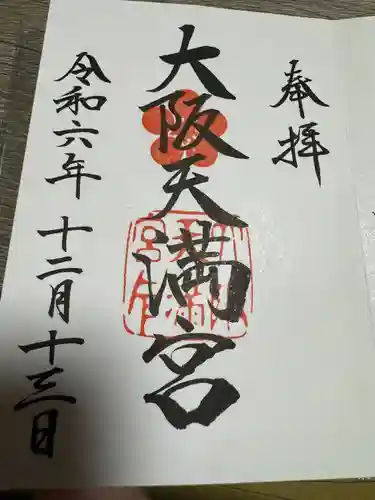 奉拝
大阪天満宮
令和六年十二月十三日